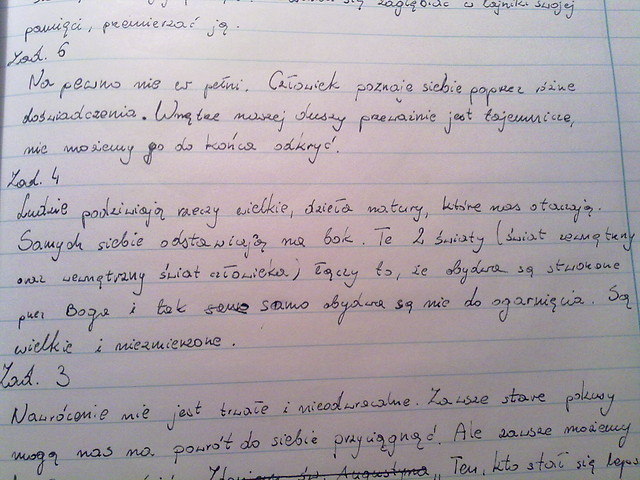 się zagłębiać w tajniki swojej
pamięci, przemierzać ją.
Zad. 6
Na pewno nie w pełni. Człowiek poznaje siebie poprzez różne
doświadczenia. Wnętrze naszej duszy przeważnie jest tajemnicze,
nie możemy go do końca odkryć.
Zad. 4
Ludzie podziwiają rzeczy wielkie, dzieła natury, które nas otaczają.
Samych siebie odstawiają na bok. Te 2 światy (świat zewnętrzny
oraz wewnętrzny świat człowieka) łączy to, że obydwa są stworzone
przez Boga i tak samo obydwa są nie do ogarnięcia. Są
wielkie i niezmierzone.
Zad. 3
Nawrócenie nie jest trwałe i nieodwracalne. Zawsze stare pokusy
mogą nas na powrót do siebie przyciągnąć. Ale zawsze możemy
św. Augustyna „Ten, kto stał się lepszy